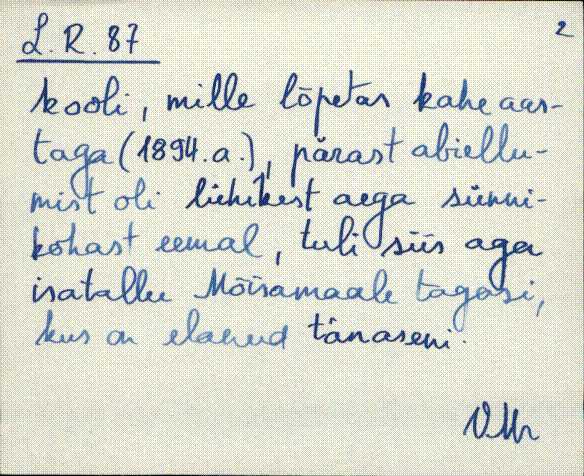 L.R. 87
2
kooli, mille lõpetas kahe aas-
taga (1894.a.), pärast abiellu-
mist oli lühikest aega sünni-
kohast eemal, tuli siis aga
isatallu Mõisamaale tagasi,
kus on elanud tänaseni.